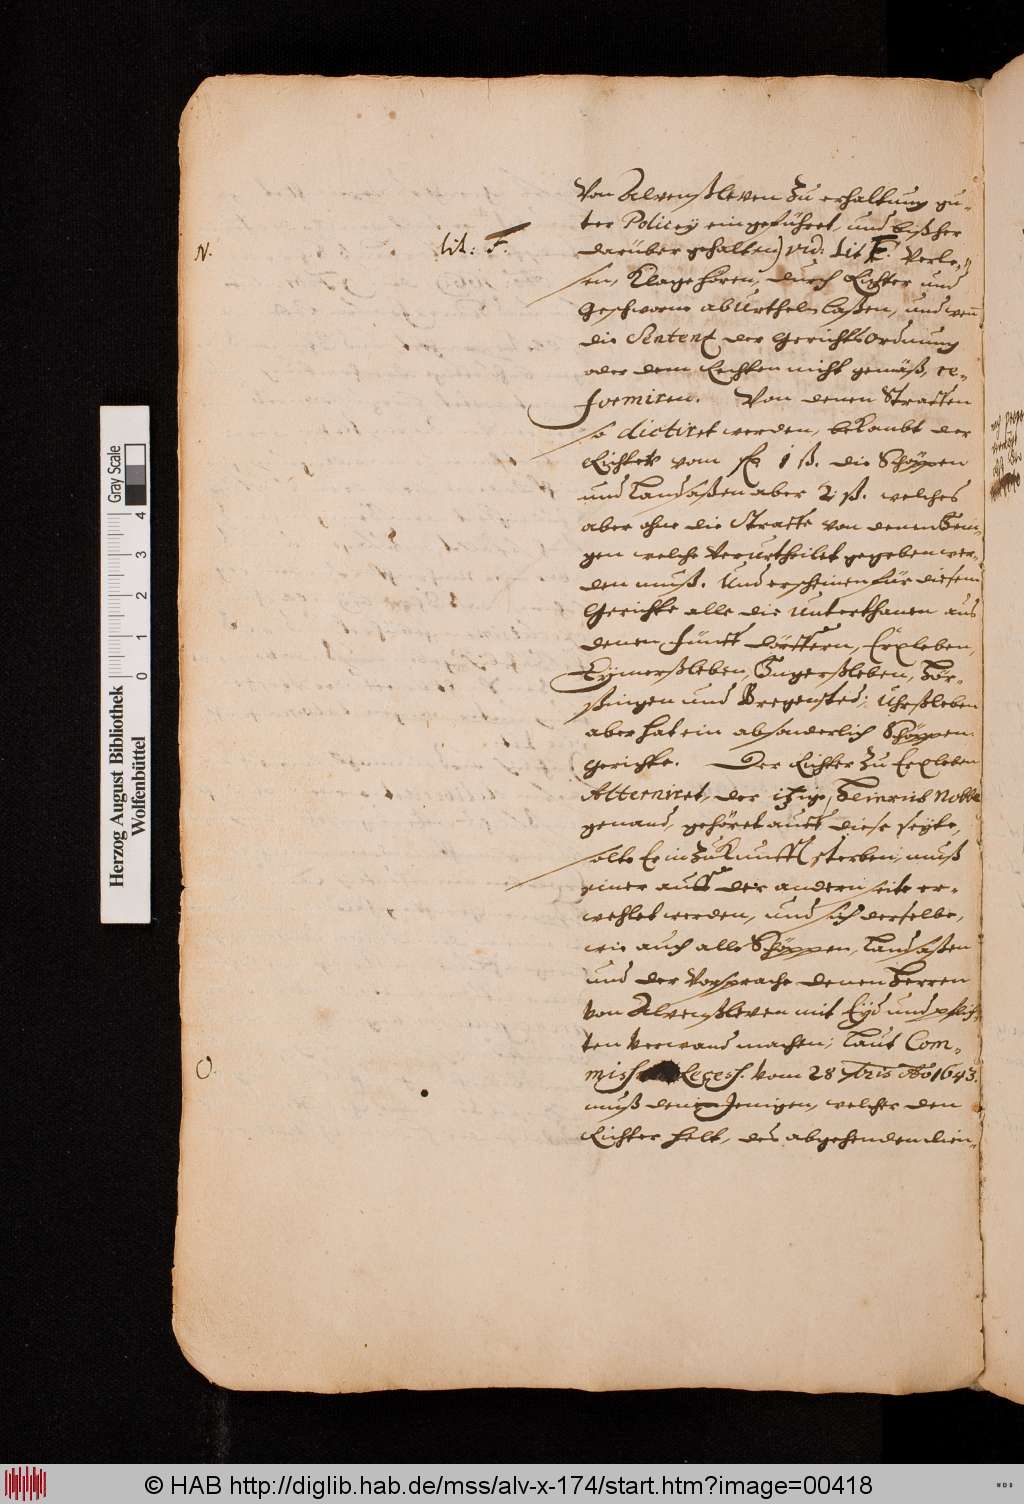 Von Alvenßleven zu erhaltung gu-
ter Policey eingeführet, und bißher
N. lit: F. darüber gehalten) vid: Lit F. Verle-
sen, Klage hören, durch Richter und
Geschworne aburtheln laßen, und wenn
die Sentenz der Gerichts Ordnung
oder dem Rechten nicht gemäß, re-
formiren. Von denen Straffen
so dictiret werden, bekombt der
Richter vom 1 ß. die Schöppen
und Landsaßen aber 2 ß. welches
aber ohne die Straffe von denen
gen welche Verurtheilet gegeben wer-
den muß. Und erscheinen für diesem
Gerichte alle die Unterthanen aus
denen fünff dörffern, Erxleben,
Eymerßleben, Ingerßleben, Hör-
ßingen und Bregensted; Uhrßleben
aber hat ein absonderlich Schöppen
gerichte. Der Richter zu Erxleben
Alterniret, der itzige, Heinrich Nobbe
genand, gehöret auff diese seyte,
solte Er in Zukunfft sterben, muß
einer auff der andern seite er-
wehlet werden, und sich derselbe,
wie auch alle Schöppen, Landsaßen
und der Vorsprache denen Herren
Von Alvenßleven mit Eyd und pflich-
ten Verwand machen; Laut Com-
O. miss. Recess. Vom 28 1643.
muß denen Jenigen, welcher den
Richter helt, des abgehenden dien-
Herzog August Bibliothek
Wolfenbüttel
Gray Scale
0 1 2 3 4
© HAB http://diglib.hab.de/mss/alv-x-174/start.htm?image=00418